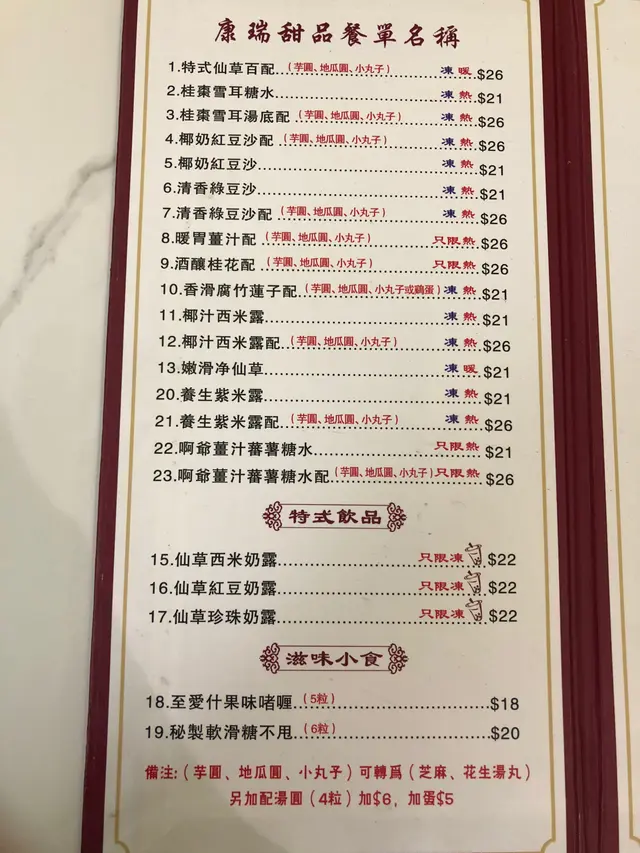 康瑞甜品餐單名稱
1.特式仙草百配(芋圓、地瓜圓、小丸子)凍 暖 $26
2.桂棗雪耳糖水凍 熱 $21
3.桂棗雪耳湯底配(芋圓、地瓜圓、小丸子)凍 熱 $26
4.椰奶紅豆沙配(芋圓、地瓜圓、小丸子)凍 熱 $26
5.椰奶紅豆沙凍 熱 $21
6.清香綠豆沙凍 熱 $21
7.清香綠豆沙配(芋圓、地瓜圓、小丸子)凍 熱 $26
8.暖胃薑汁配(芋圓、地瓜圓、小丸子)只限熱 $26
9.酒釀桂花配(芋圓、地瓜圓、小丸子)只限熱 $26
10.香滑腐竹蓮子配(芋圓、地瓜圓、小丸子或鷄蛋)凍 熱 $21
11.椰汁西米露凍 熱 $21
12.椰汁西米露配(芋圓、地瓜圓、小丸子)凍 熱 $26
13.嫩滑净仙草凍 暖 $21
20.養生紫米露凍 熱 $21
21.養生紫米露配(芋圓、地瓜圓、小丸子)凍 熱 $26
22.啊爺薑汁蕃薯糖水只限熱 $21
23.啊爺薑汁蕃薯糖水配(芋圓、地瓜圓、小丸子)只限熱 $26
特式飲品
15.仙草西米奶露只限凍 $22
16.仙草紅豆奶露只限凍 $22
17.仙草珍珠奶露只限凍 $22
滋味小食
18.至愛什果味啫喱(5粒)$18
19.秘製軟滑糖不甩(6粒)$20
備注:(芋圓、地瓜圓、小丸子)可轉爲(芝麻、花生湯丸)
另加配湯圓(4粒)加$6,加蛋$5